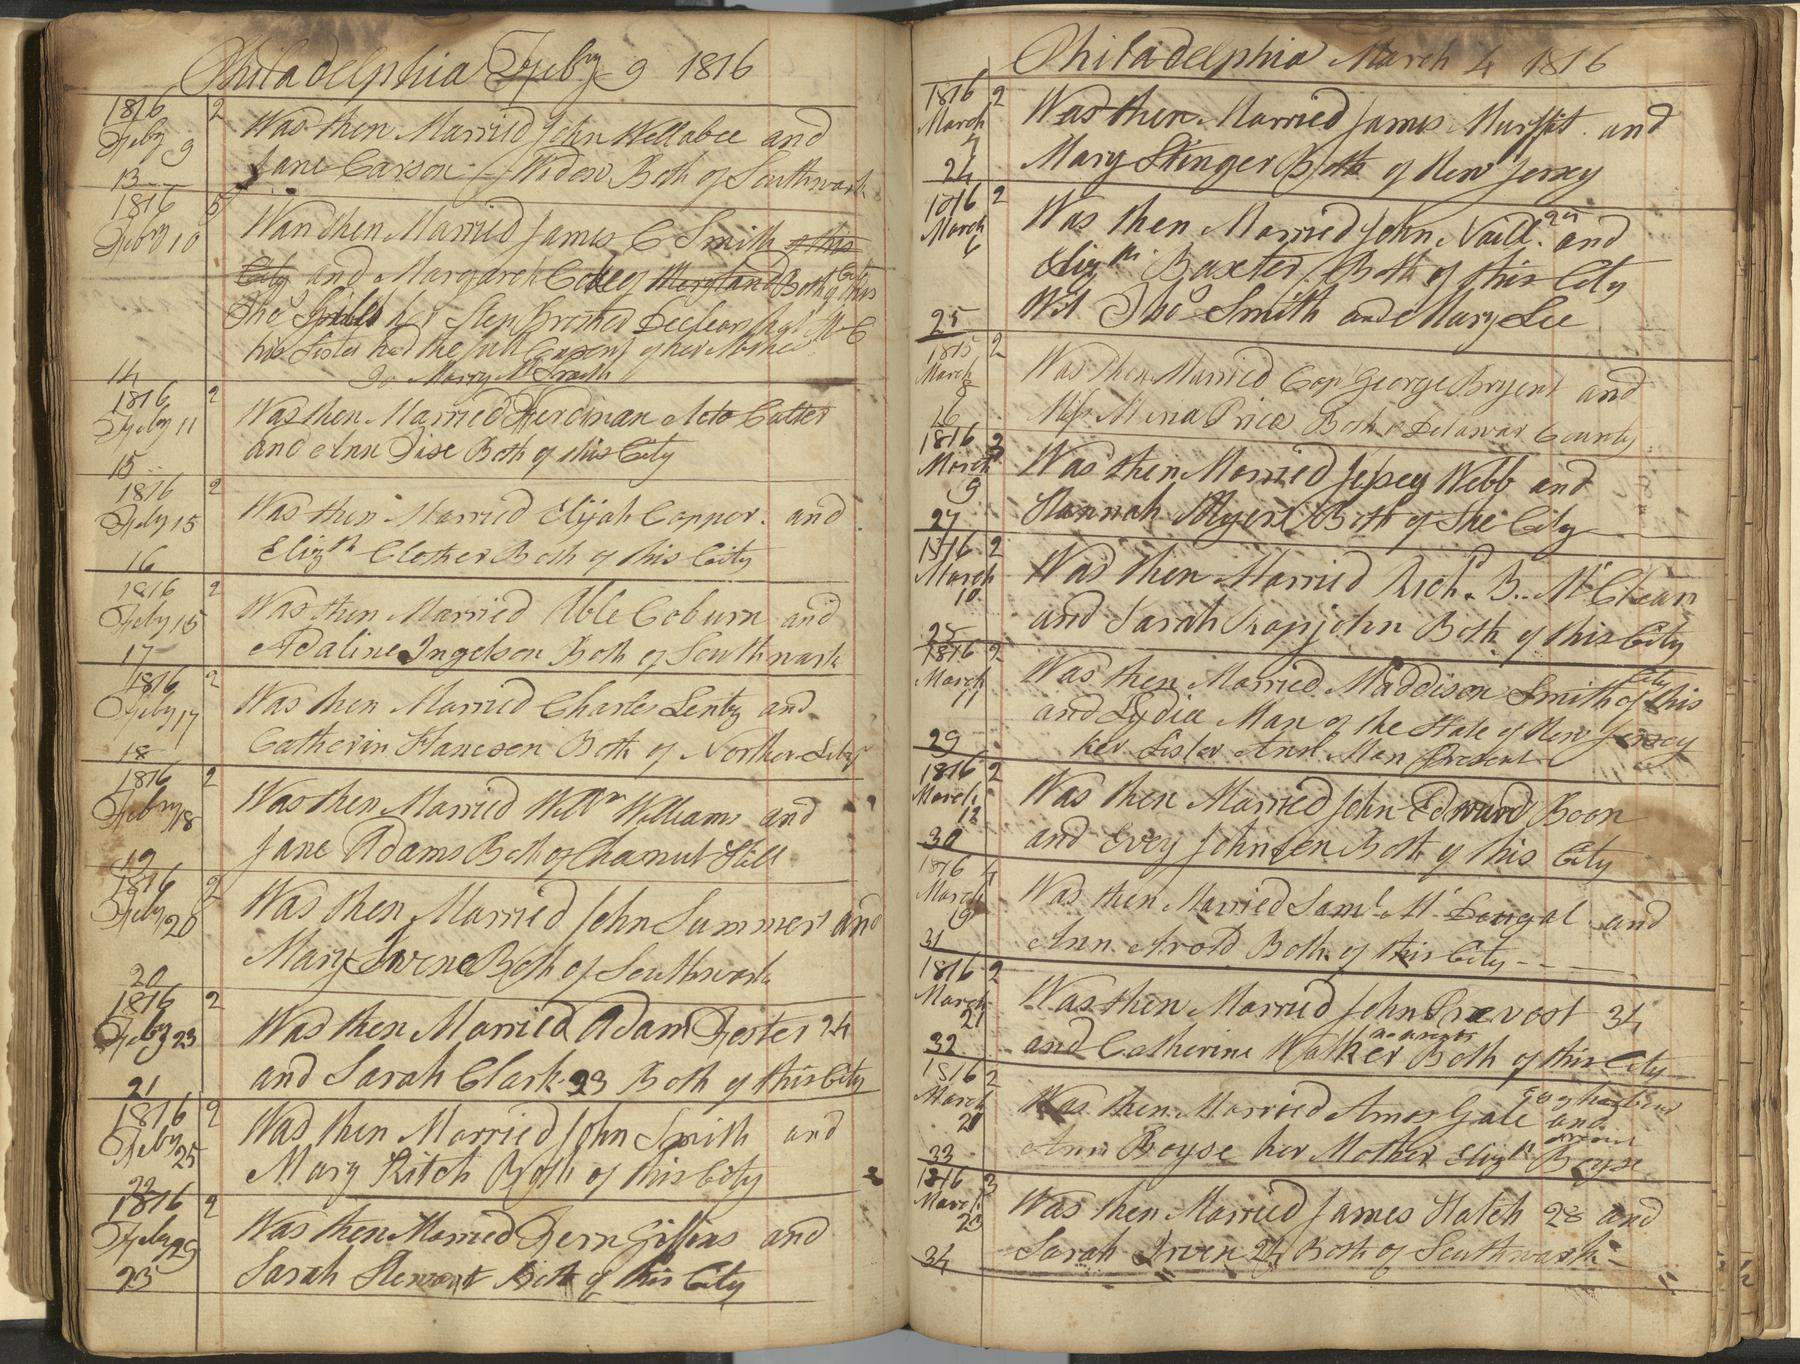 Philadelphia Feby 9 1816
1816 2
Feby 9
13
Was then Married John Wellabee and
Jane Carson - Widow Both of Southwark
1816 5
Feby 10
14
Was then Married James C Smith of this
City and Margaret Cole of Maryland Both of this City
The her Step Brother Declear that M C
his Sister had the full Consent of her Mother
To Marry Mr Smith
1816 2
Feby 11
15
Was then Married Ferdinan Cutter
and Ann Dise Both of this City
1816 2
Feby 15
16
Was then Married Elijah Copper and
Elizth Clother Both of this City
1816 2
Feby 15
17
Was then Married Able Coburn and
Adaline Ingelson Both of Southwark
1816 2
Feby 17
18
Was then Married Charles Lenty and
Catherin Hancson Both of Northern Liby
1816 2
Febry 18
19
Was then Married Willm Williams and
Jane Adams Both of Chesnut Hill
1816 2
Feby 20
20
Was then Married John Summers and
Mary Both of Southwark
1816 2
Feby 23
21
Was then Married Adam Foster 24
and Sarah Clark 23 Both of this City
1816 2
Feby 25
22
Was then Married John Smith and
Mary Ritch Both of this City
1816 2
Feby 29
23
Was then Married and
Sarah Stewart Both of this City
Philadelphia March 4 1816
1816 2
March 4
24
Was then Married James Murfit and
Mary Stinger Both of New Jersey
1816 2
March 6
25
Was then Married John Naill and
Elizth Baxter Both of this City
Wit Thos Smith and Mary Lee
1815 2
March 8
26
Was then Married Cap George Bryent and
Miss Maria Price Both of Delawar County
1816 3
March 9
27
Was then Married Jessey Webb and
Hannah Myers Both of the City
1816 2
March 10
Was then Married Richd B. Mc Clean
and Sarah Both of this City
1816 2
March 11
29
Was then Married Maddison Smith of this City
and Lydia Man of the State of New Jersey
her Sister Ann Man Present
1816 2
March 12
30
Was then Married John Edward Boon
and Evey Johnson Both of this City
1816
March 19
31
Was then Married Saml Mc Dougal and
Ann Both of this City
1816 2
March 21
32
Was then Married John Prevost 34
and Catherine Walker Both of this City
1816 2
March 21
33
Was then Married Amos Gale and
Ann Boyse her Mother Elizth Boyse
1816 3
March 23
34
Was then Married James Hatch 28 and
Sarah Irven 24 Both of Southwark